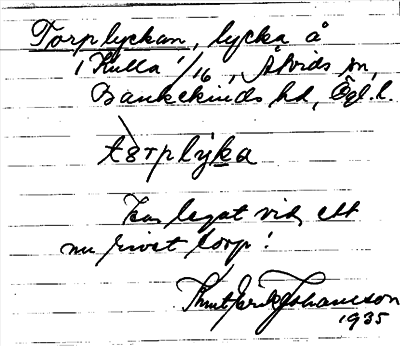 Torplyckan, lycka å
1 Kulla 1/16, Åtvids sn,
Bankekinds hd, Ög. l.
tɷrplyka
Har legat vid ett
nu rivet torp!
Knut Erik Johansson
1935